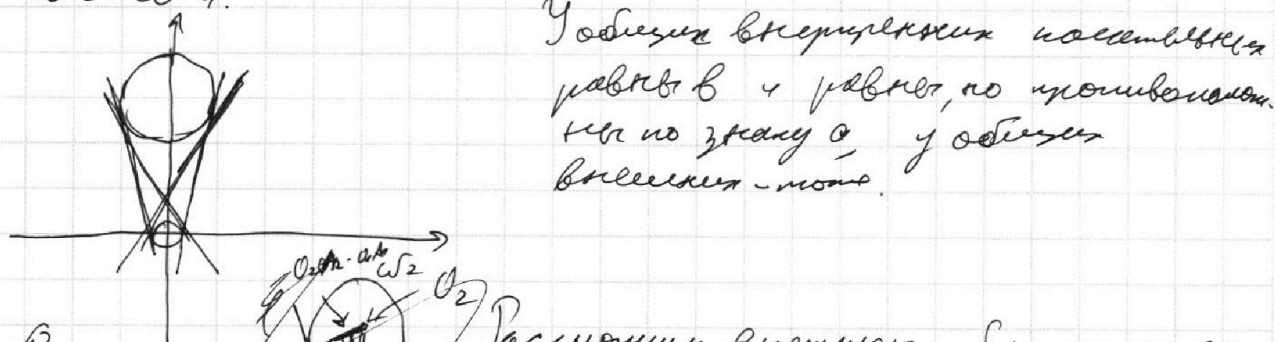 У общих внутренних касательных
равны b и равны, но противополож-
ны по знаку a, у общих
внешних - тоже.
O₂
Рассмотрим